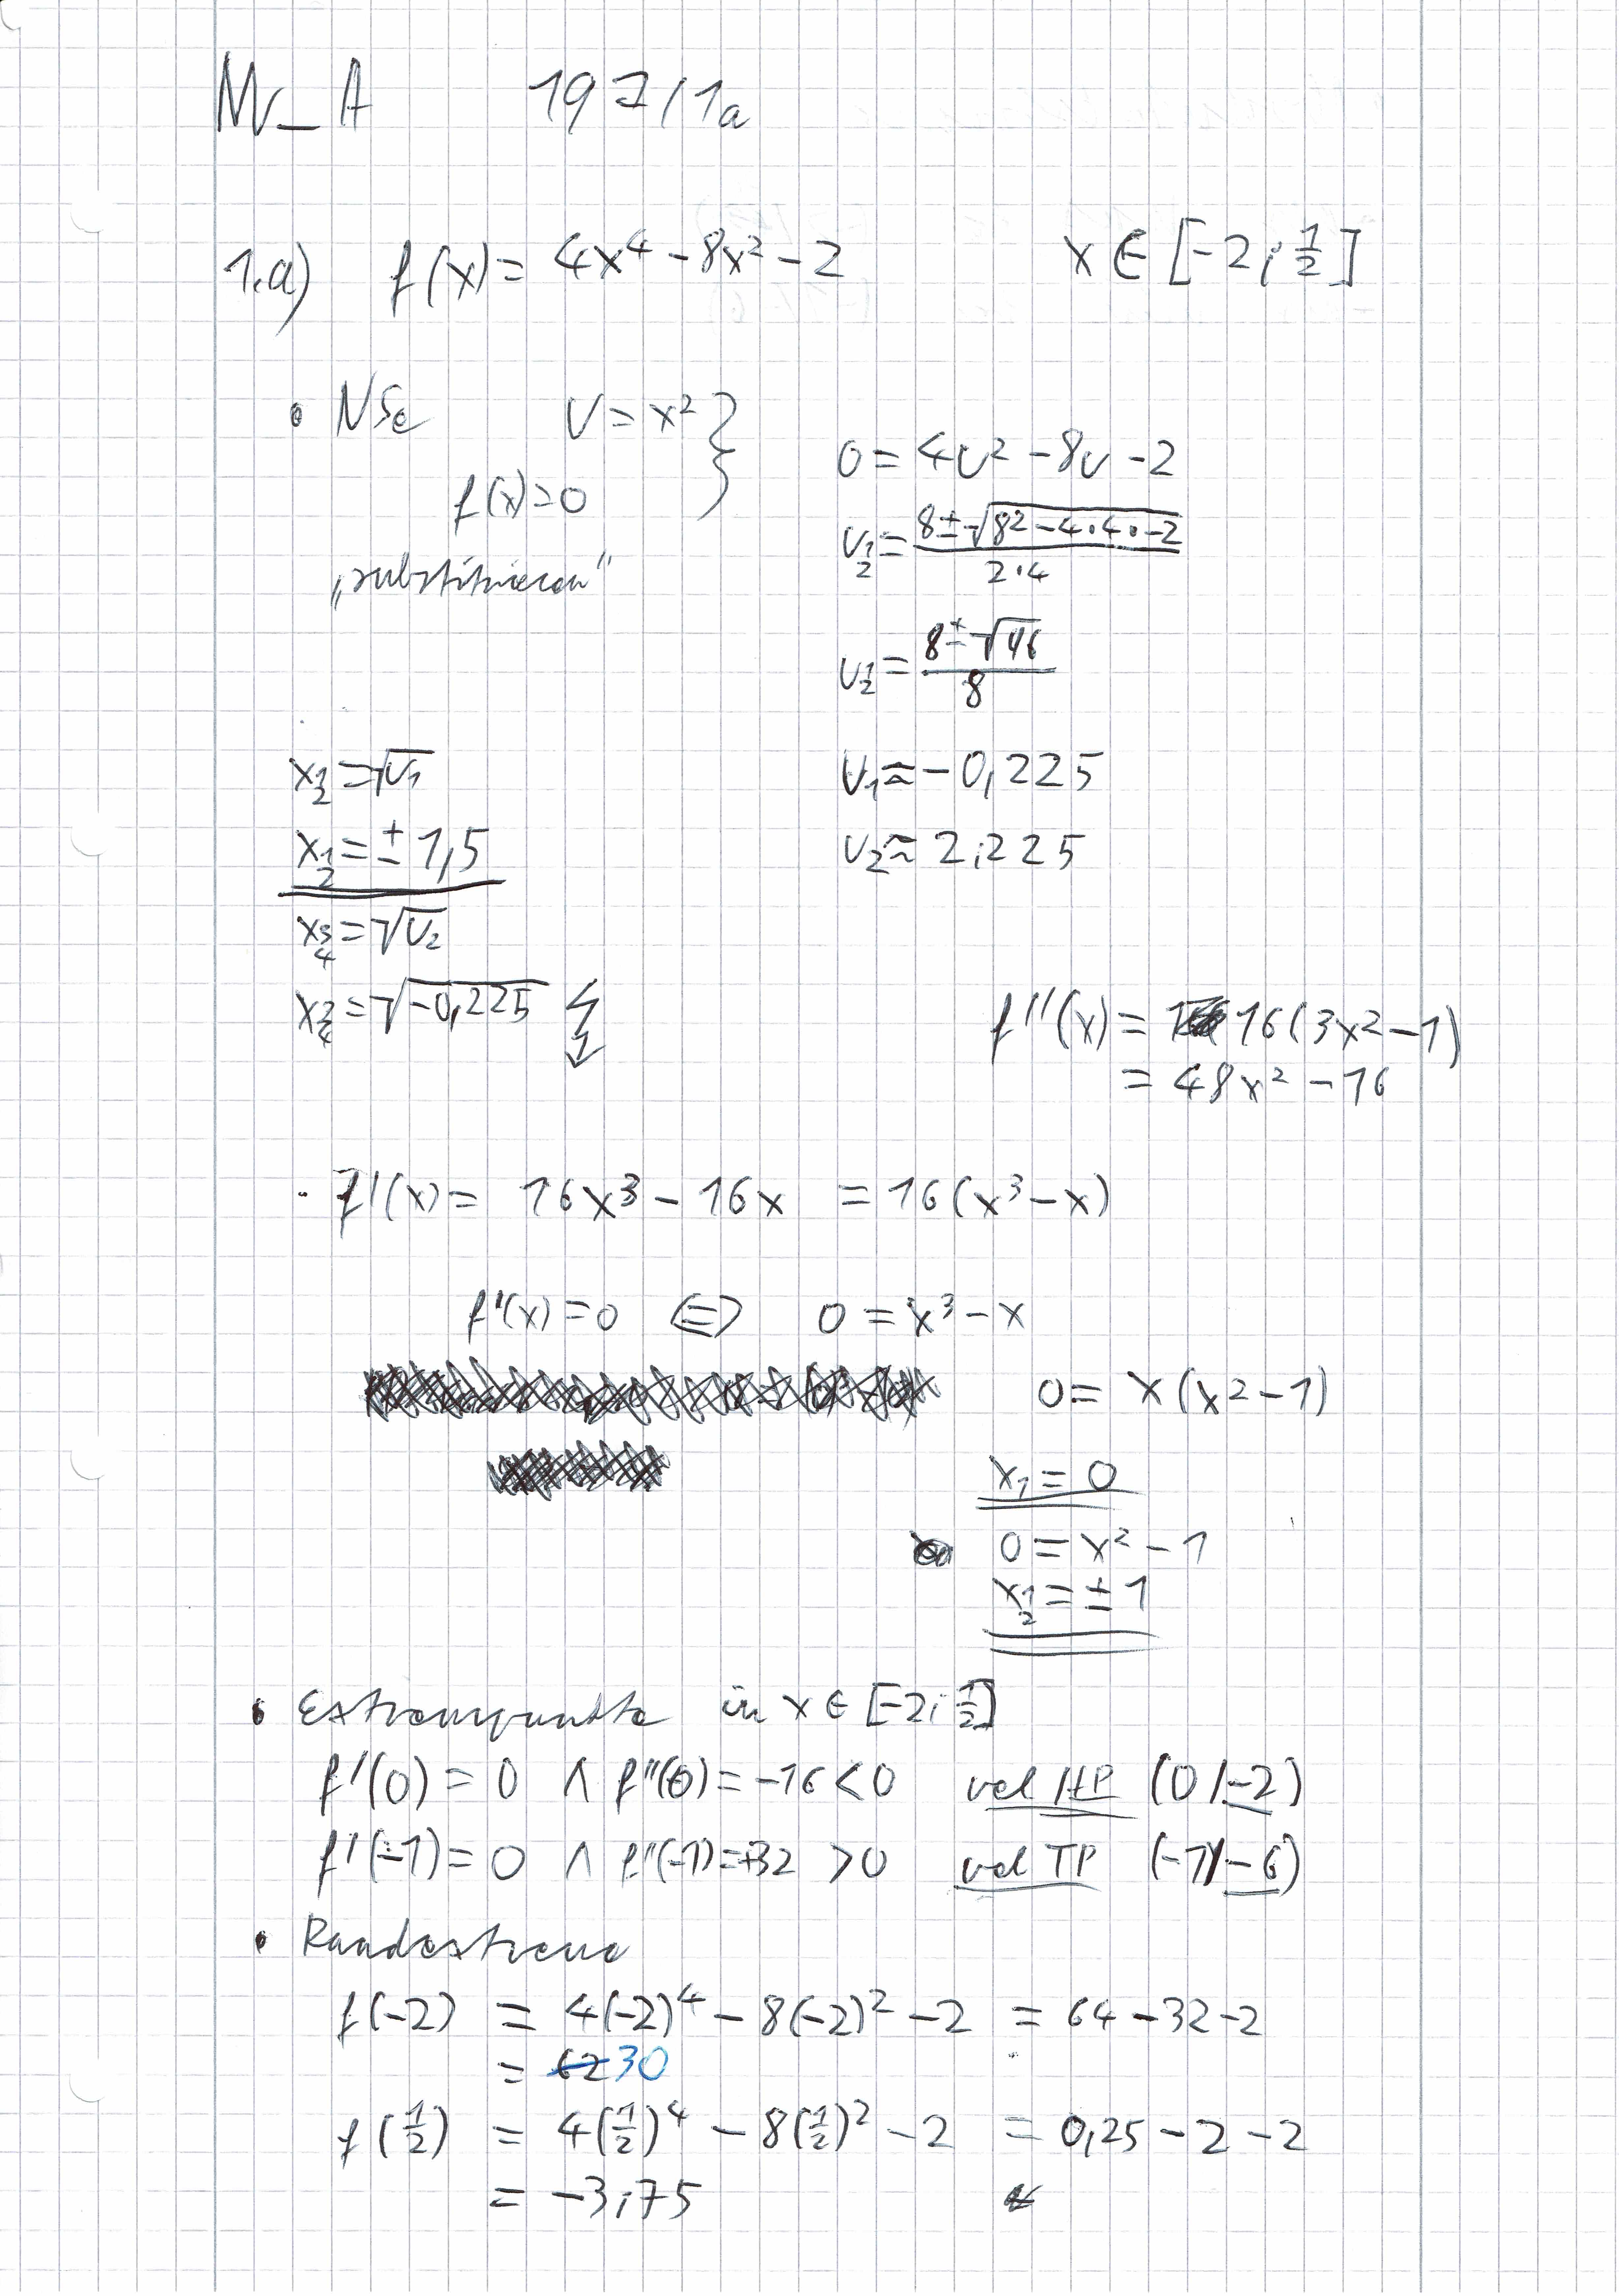 M_A 197/1a
1.a) f(x) = 4x⁴ - 8x² - 2 x ∈ [-2; 1/2]
• NSt U = x² }
f(x) = 0
"substituieren"
0 = 4U² - 8U - 2
U½ = (8 ± √(8² - 4·4·-2)) / (2·4)
U½ = (8 ± √96) / 8
U₁ ≈ -0,225
U₂ ≈ 2,225
x½ = √U₁
x½ = ± 1,5
x¾ = √U₂
x¾ = √(-0,225) ↯
f''(x) = 16(3x² - 1)
= 48x² - 16
· f'(x) = 16x³ - 16x = 16(x³ - x)
f'(x) = 0 ⇔ 0 = x³ - x
0 = x(x² - 1)
x₁ = 0
0 = x² - 1
x½ = ± 1
• Extrempunkte in x ∈ [-2; 1/2]
f'(0) = 0 ∧ f''(0) = -16 < 0 rel HP (0/-2)
f'(-1) = 0 ∧ f''(-1) = +32 > 0 rel TP (-1/-6)
• Randextrema
f(-2) = 4(-2)⁴ - 8(-2)² - 2 = 64 - 32 - 2
= 62 30
f(1/2) = 4(1/2)⁴ - 8(1/2)² - 2 = 0,25 - 2 - 2
= -3,75